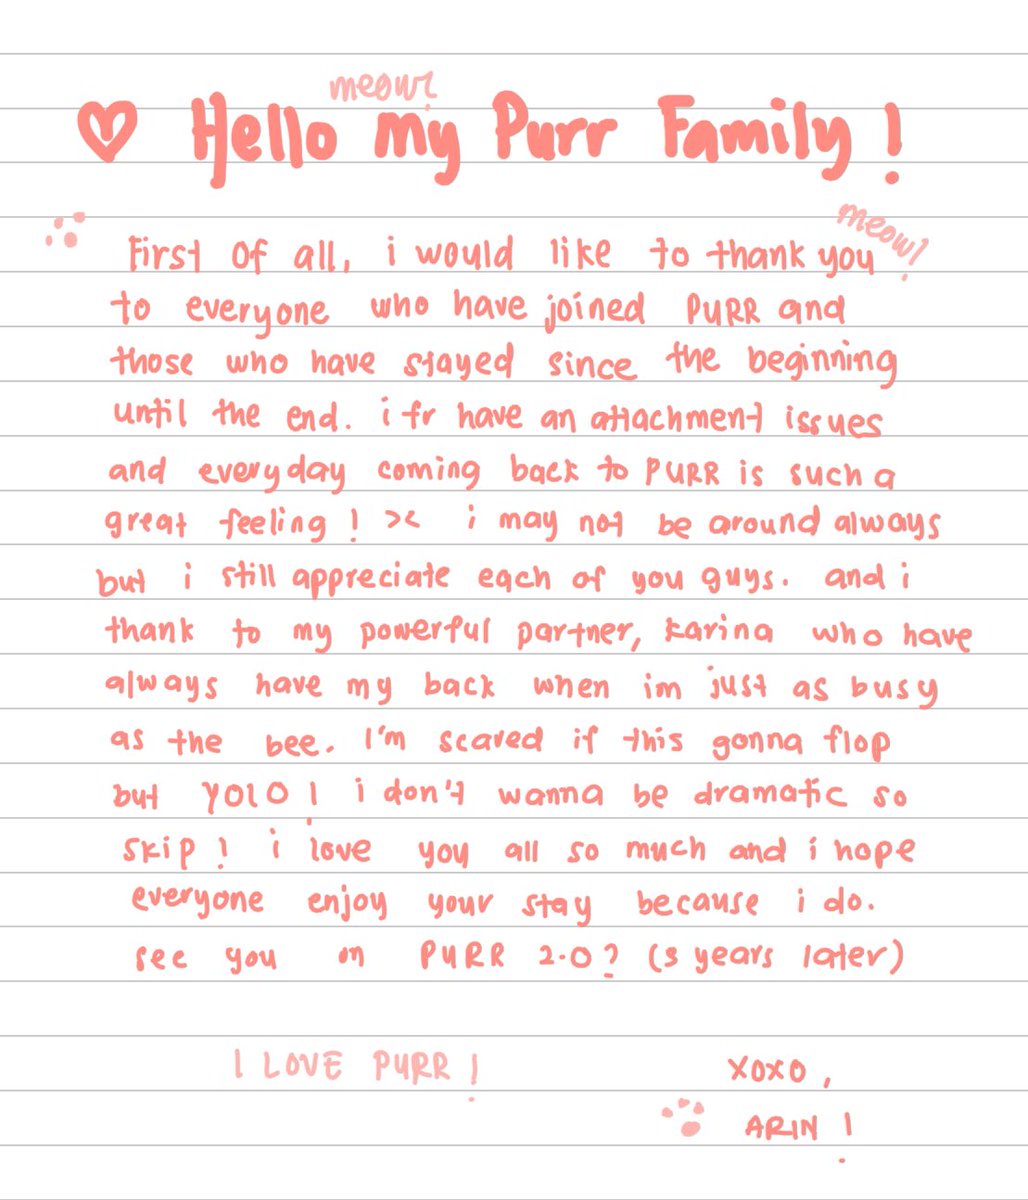 meowr
♡ Hello my Purr Family !
meow!
First of all, i would like to thank you
to everyone who have joined PURR and
those who have stayed since the beginning
until the end. i fr have an attachment issues
and everyday coming back to PURR is such a
great feeling ! >< i may not be around always
but i still appreciate each of you guys. and i
thank to my powerful partner, karina who have
always have my back when im just as busy
as the bee. I'm scared if this gonna flop
but YOLO ! i don't wanna be dramatic so
skip ! i love you all so much and i hope
everyone enjoy your stay because i do.
see you on PURR 2.0? (3 years later)
I LOVE PURR !
xoxo,
ARIN !